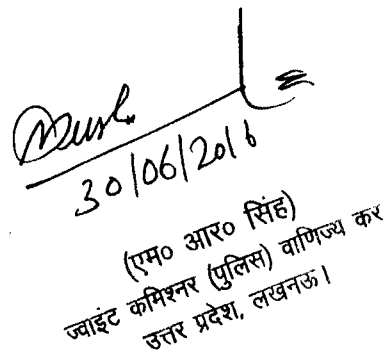 30/06/2016
(एम० आर० सिंह)
ज्वाइंट कमिश्नर (पुलिस) वाणिज्य कर
उत्तर प्रदेश, लखनऊ।